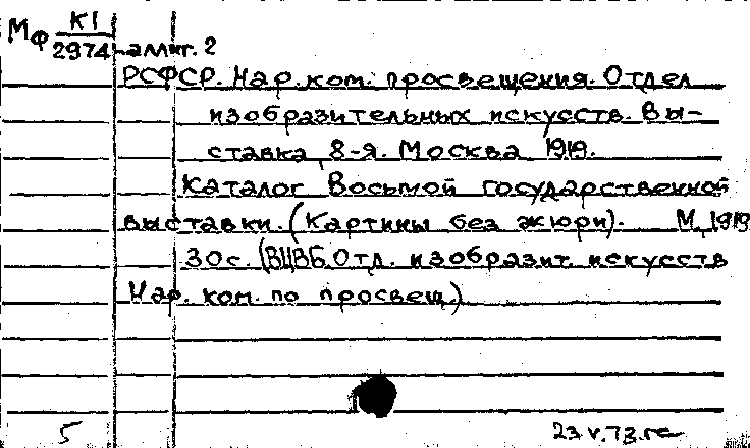 Мф К1
2974 аллиг. 2
РСФСР. Нар. ком. просвещения. Отдел
изобразительных искусств. Вы-
ставка, 8-я. Москва 1919.
Каталог Восьмой государственной
выставки. (Картины без жюри). М, 1919
30 с. (ВЦВБ. Отд. изобразит. искусств
Нар. ком. по просвещ.)
5 23.V.73.